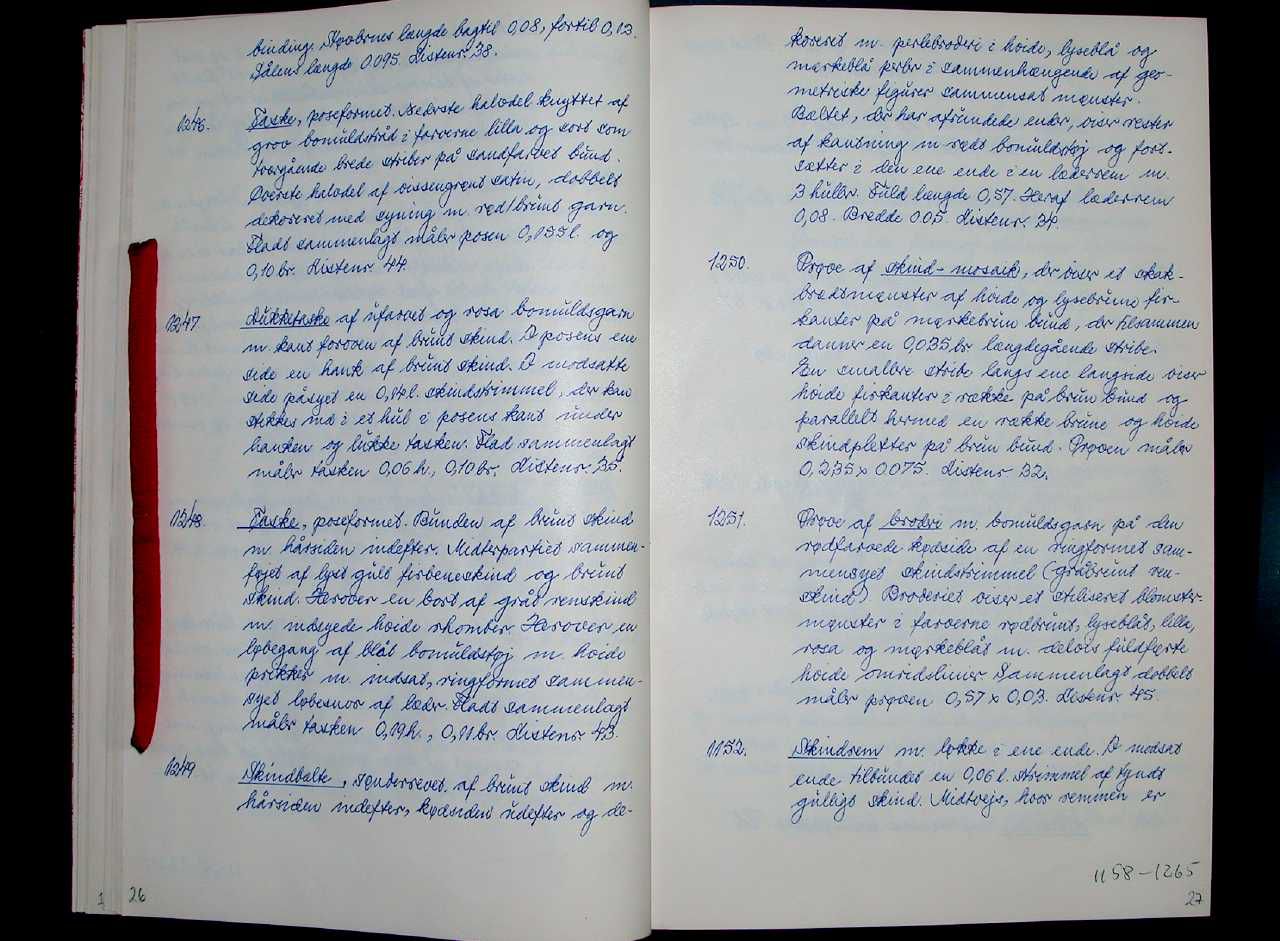 binding. Skobrnes længde bagtil 0,08, fortil 0,12.
Sålens længde 0095. Listenr. 38.
1246. Taske, poseformet. Nederste halvdel knyttet af
grov bomuldstråd i farverne lilla og sort som
tværgående brede striber på sandfarvet bund.
Øverste halvdel af vissengrønt satin, dobbelt
dekoreret med syning m. rød/brunt garn.
Fladt sammenlagt måler posen 0,155 l. og
0,10 br. Listenr. 44.
1247. Dukketaske af ufarvet og rosa bomuldsgarn
m. kant foroven af brunt skind. I posens ene
side en hank af brunt skind. I modsatte
side påsyet en 0,14 l. skindstrimmel, der kan
stikkes ind i et hul i posens kant under
hanken og lukke tasken. Flad sammenlagt
måler tasken 0,06 h., 0,10 br. Listenr. 35.
1248. Taske, poseformet. Bunden af brunt skind
m. hårsiden indefter. Midterpartiet sammen-
føjet af lyst gult firbeneskind og brunt
skind. Herover en bort af gråt renskind
m. indsyede hvide rhomber. Herover en
løbegang af blåt bomuldstøj m. hvide
prikker m. indsat, ringformet sammen-
syet løbesnor af læder. Fladt sammenlagt
måler tasken 0,19 h., 0,11 br. Listenr. 43.
1249 Skindbælte, sønderrevet, af brunt skind m.
hårsiden indefter, kødsiden udefter og de-
1 26
koreret m. perlebroderi i hvide, lyseblå og
mørkeblå perler i sammenhængende af geo-
metriske figurer sammensat mønster.
Bæltet, der har afrundede ender, viser rester
af kantning m rødt bomuldstøj og fort-
sætter i den ene ende i en læderrem m.
3 huller. Fuld længde 0,57. Heraf læderrem
0,08. Bredde 005. Listenr. 34.
1250. Prøve af skind-mosaik, der viser et skak-
brædtmønster af hvide og lysebrune fir-
kanter på mørkebrun bund, der tilsammen
danner en 0,035 br. længdegående stribe.
En smallere stribe langs ene langside viser
hvide firkanter i række på brun bund og
parallelt hermed en række brune og hvide
skindpletter på brun bund. Prøven måler
0,235 x 0075. Listenr 32.
1251. Prøve af brodri m. bomuldsgarn på den
rødfarvede kødside af en ringformet sam-
mensyet skindstrimmel (gråbrunt ren-
skind). Broderiet viser et stiliseret blomster-
mønster i farverne rødbrunt, lyseblåt, lilla,
rosa og mørkeblåt m. delvis fuldførte
hvide omridslinier. Sammenlagt dobbelt
måler prøven 0,57 x 0,03. Listenr. 45.
1152. Skindrem m. løkke i ene ende. I modsat
ende tilbundet en 0,06 l. strimmel af tyndt
gulligt skind. Midtvejs, hvor remmen er
1158-1265
27